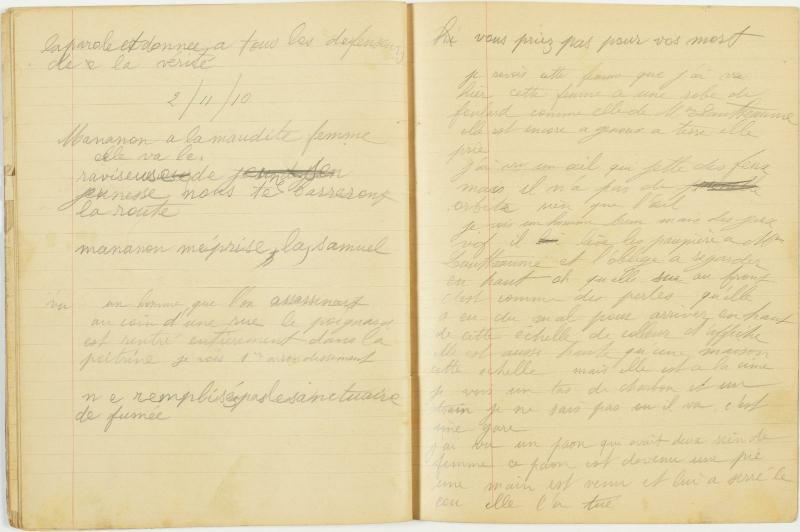 la parole et donnee a tous les defenseurs
de la verité
2/11/10
Mananon a la maudite femme
elle va le
raviseuse de
jeunesse nous te barrerons
la route
mananon méprise la samuel
vu un homme que l'on assassinait
au coin d'une rue le poignard
est rentré entierement dans la
poitrine je vois 1er arrondissement
ne remplisé pas le sanctuaire
de fumée
vous priez pas pour vos mort
je revois cette femme que j'ai vu
hier cette femme a une robe de
foulard comme elle de M
elle est encore a genoux a terre elle
prie
j'ai vu un œil qui jette des feux
mais il n'a pas de
orbite rien que l'œil
je vois un homme brun mais des yeux
il lève les paupière a Mme
et l'oblige a regarder
en haut oh qu'elle sue au front
c'est comme des perles qu'elle
a eu du mal pour arriver en haut
de cette échelle de couleur d'affiche
elle est aussi haute qu'une maison
cette echelle mais elle est a la cime
je vois un tas de charbon et un
train je ne sais pas ou il va c'est
une gare
j'ai vu un paon qui avait deux sein de
femme ce paon est devenu une pie
une main est venu et lui a serré le
cou elle l'a tué